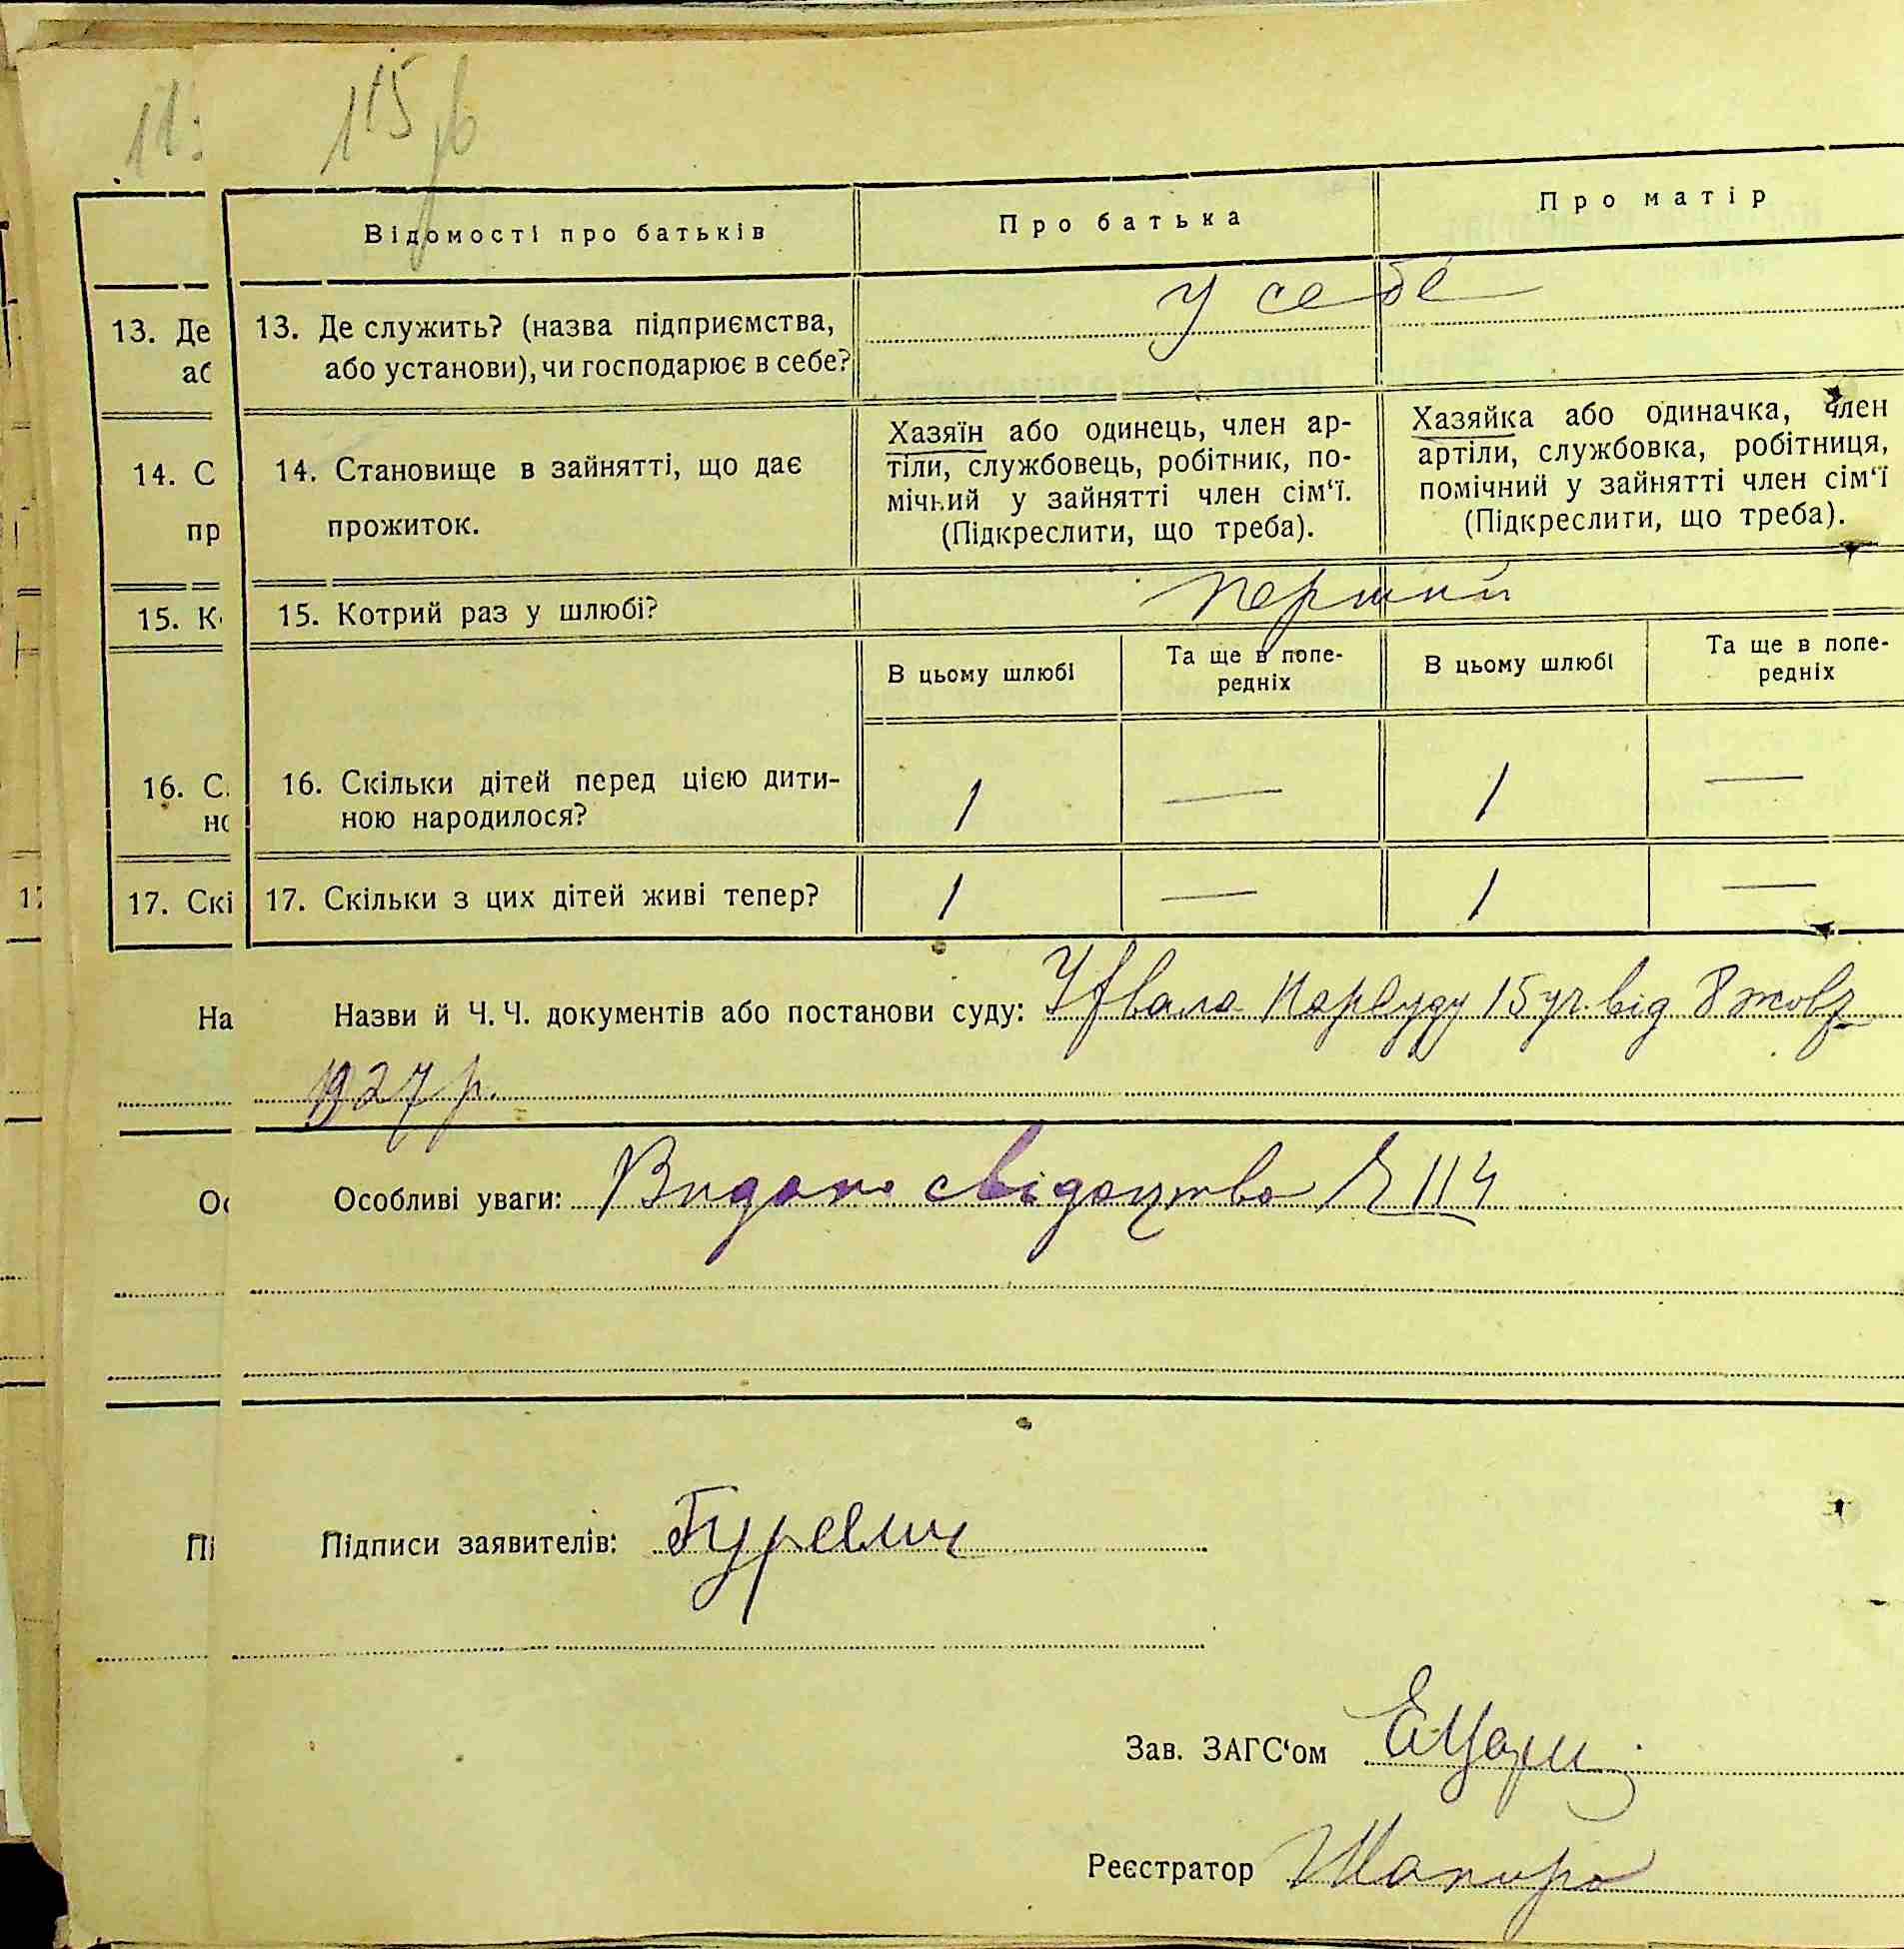 115
Відомості про батьків
Про батька
Про матір
13. Де служить? (назва підприємства,
або установи), чи господарює в себе?
у себе
14. Становище в зайнятті, що дає
прожиток.
Хазяїн або одинець, член ар-
тіли, службовець, робітник, по-
мічний у зайнятті член сім‘ї.
(Підкреслити, що треба).
Хазяйка або одиначка, член
артіли, службовка, робітниця,
помічний у зайнятті член сім‘ї
(Підкреслити, що треба).
15. Котрий раз у шлюбі?
перший
В цьому шлюбі
Та ще в попе-
редніх
В цьому шлюбі
Та ще в попе-
редніх
16. Скільки дітей перед цією дити-
ною народилося?
1 — 1 —
17. Скільки з цих дітей живі тепер?
1 — 1 —
Назви й Ч. Ч. документів або постанови суду: Ухвала Нарсуду 15 уч. від 8 жовт
1927 р.
Особливі уваги: Видано свідоцтво № 114
Підписи заявителів: Гуревич
Зав. ЗАГС‘ом
Реєстратор Шапиро
13. Де
аб
14. С
пр
15. К
16. С
но
17. Скі
На
Ос
Пі